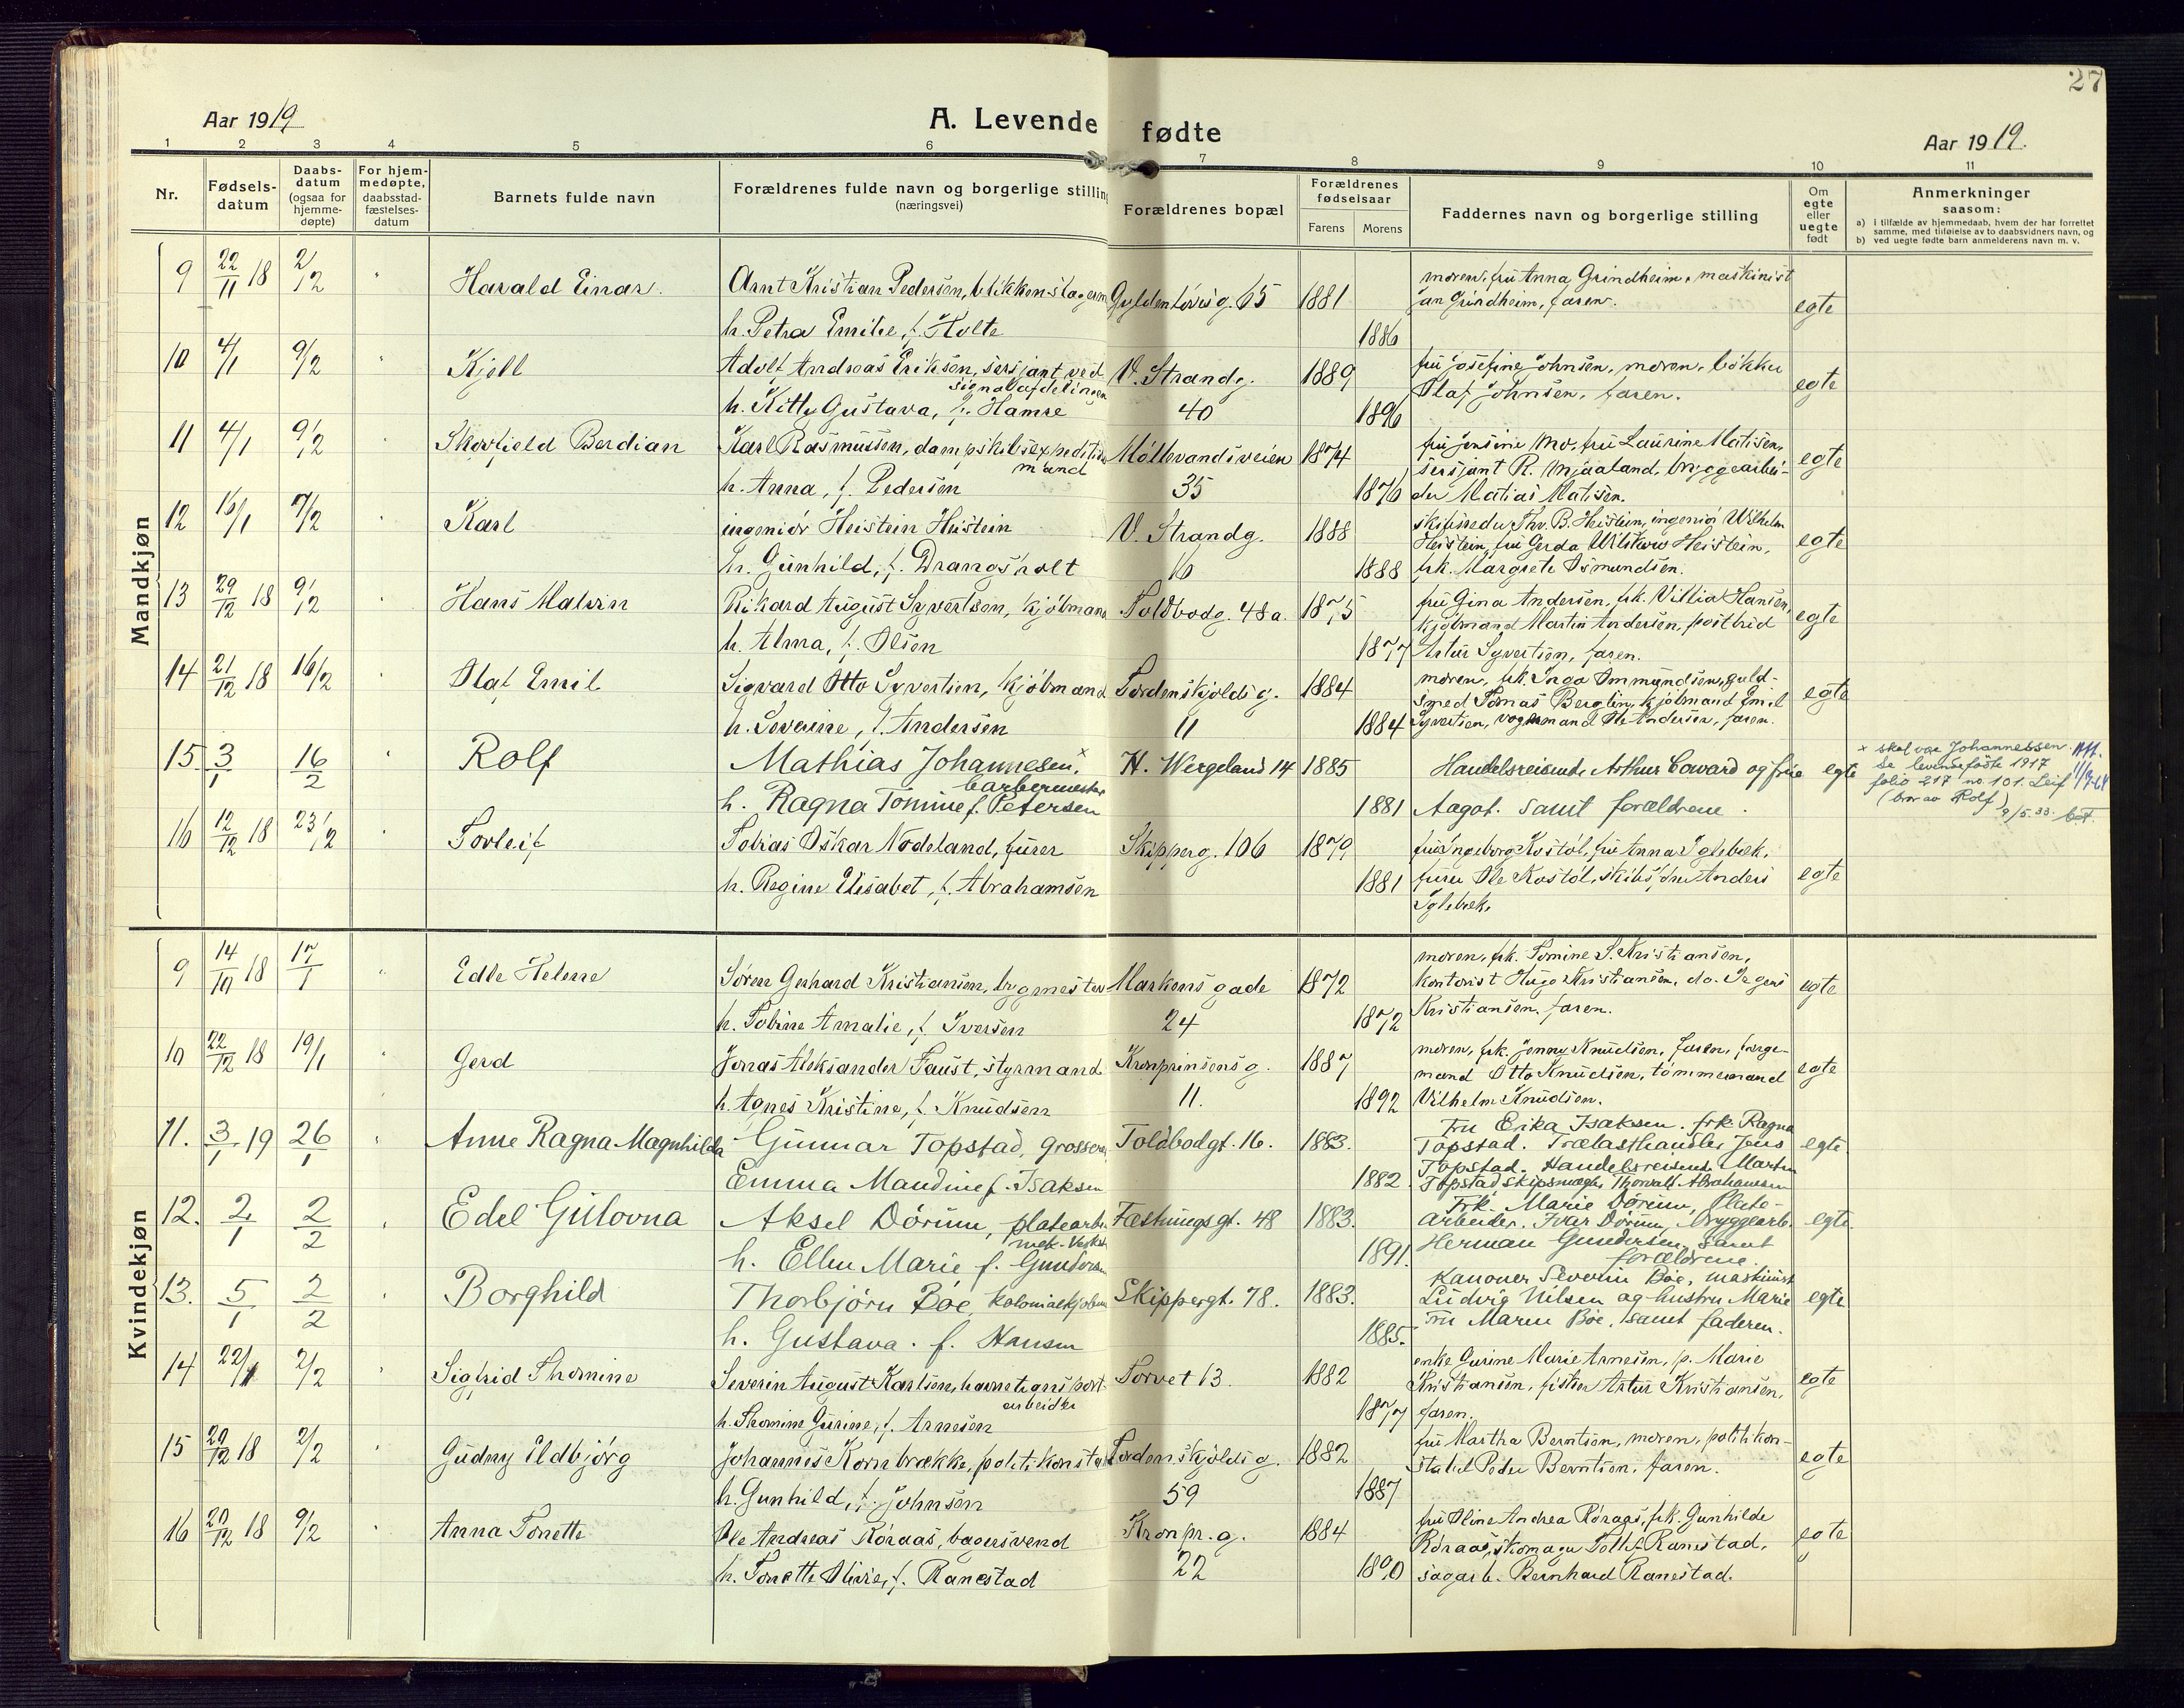 27
Aar 1919
A. Levende fødte
Aar 1919.
1 2 3 4 5 6 7 8 9 10 11
Nr.
Fødsels-
datum
Daabs-
datum
(ogsaa for
hjemme-
døpte)
For hjem-
medøpte,
daabsstad-
fæstelses-
datum
Barnets fulde navn
Forældrenes fulde navn og borgerlige stilling
(næringsvei)
Forældrenes bopæl
Forældrenes
fødselsaar
Farens Morens
Faddernes navn og borgerlige stilling
Om
egte
eller
uegte
født
Anmerkninger
saasom:
a) i tilfælde av hjemmedaab, hvem der har forrettet
samme, med tilføielse av to daabsvidners navn, og
b) ved uegte fødte barn anmelderens navn m. v.
Mandkjøn
9 22/11 18 2/12 Harald Einar. Arnt Kristian Pedersen, blikkenslagerm Gyldenløvesg. 65 1881 moren, fru Anna Grindheim, maskinist
Jan Grindheim, faren. egte
h. Petra Emilie, f. Holte 1886
10 4/1 9/2 Kjell Adolf Andreas Eriksen, sersjant ved V. Strandg. 1889 fru Josefine Johnsen, moren, bøkker
signalafdelingen Olaf Johnsen, faren. egte
h. Kitty Gustava, f. Hamre 40 1896
11 4/1 9/2 Skovfield Berdian Karl Rasmussen, dampskibsexpeditions Møllevandsveien 1874 fru Jensine Mo, fru Laurine Matisen,
mand sersjant R. Mjaaland, bryggearbei- egte
h. Anna, f. Pedersen 35 1876 der Matias Matisen.
12 16/1 7/2 Karl ingeniør Heistein Heistein V. Strandg. 1888 skibsreder Thv. B. Heistein, ingeniør Wilhelm
Heistein, fru Gerda Heistein, egte
h. Gunhild, f. Drangsholt 16 1888 frk. Margrete Osmundsen.
13 29/12 18 9/2 Hans Malvin Rikard August Syvertsen, kjøbmand Toldbodg. 48a. 1875 fru Gina Andersen, frk. Villia Hansen,
kjøbmand Martin Andersen, postbud egte
h. Alma, f. Olsen 1877 Artur Syvertsen, faren.
14 21/12 18 16/2 Olaf Emil Sigvard Otto Syvertsen, kjøbmand Tordenskjoldsg. 1884 moren, frk. Inga Ommundsen, guld-
smed Tomas Berglin, kjøbmand Emil egte
h. Severine, f. Andersen 11 1884 Syvertsen, vognmand Ole Andersen, faren.
15 3/1 16/2 Rolf Mathias Johannesen,x H. Wergeland 14 1885 Handelsreisende Arthur Coward og frue egte
barbermester
h. Ragna Tomine f. Petersen 1881 Aagot. samt forældrene.
x skal være Johannessen.
Se levendefødte 1917
folio 217 no. 101. Leif
(bror av Rolf)
9/5.33.
16 12/12 18 23/2 Torleif Tobias Oskar Nodeland, furer Skipperg. 106 1879 fru Ingeborg Kostøl, fru Anna Iglebæk,
h. Regine Elisabet, f. Abrahamsen 1881 furer Ole Kostøl, skibsfører Anders egte
Iglebæk.
Kvindekjøn
9 14/10 18 17/1 Edle Helene Søren Gerhard Kristiansen, bygmester Markens gade 1872 moren, frk. Tomine S. Kristiansen,
kontorist Hugo Kristiansen, do. Segers egte
h. Tobine Amalie, f. Iversen 24 1872 Kristiansen, faren.
10 22/12 18 19/1 Gerd Jonas Aleksander Faust, styrmand Kronprinsensg. 1887 moren, frk. Jenny Knudsen, faren, færge-
mand Otto Knudsen, tømmermand egte
h. Agnes Kristine, f. Knudsen 11. 1892 Vilhelm Knudsen.
11. 3/1 19 26/1 Anne Ragna Magnhilda Gunnar Topstad, grosserer Toldbodgt. 16. 1883. Fru Erika Isaksen. frk. Ragna
Topstad. Trælasthandler Jens egte
Emma Maudine f. Isaksen 1882. Topstad. Handelsreisende Martin
Topstad skipsmægler Thorvald Abrahamsen
12. 2/1 2/2 Edel Gulovna Aksel Dórum, platearb. Fæstningsgt. 48 1883. Frk. Marie Dórum, Plate-
mek. Verkst. arbeider. Ivar Dórum, bryggearb. egte
h. Ellen Marie f. Gundersen 1891. Herman Gundersen samt
forældrene.
13. 5/1 2/2 Borghild Thorbjörn Bóe, kolonialkjøbm Skippergt. 78. 1883. Kanoner Severin Bóe, maskinist
Ludvig Nilsen og hustru Marie egte
h. Gustava. f. Hansen 1885. Fru Maren Bóe, samt faderen.
14 22/1 2/2 Sigfrid Thomine Severin August Karlsen, havnetransport- Torvet 13. 1882 enke Gurine Marie Arnesen, p. Marie
arbeider Kristiansen, fisker Artur Kristiansen, egte
h. Thomine Gurine, f. Arnesen 1877 faren.
15 20/12 18 2/2 Gudny Eldbjørg Johannes Kornbrække, politikonstabel Tordenskjoldsg. 1882 fru Martha Berntsen, moren, politikon-
stabel Peder Berntsen, faren. egte
h. Gunhild, f. Johnsen 59 1887
16 20/12 18 9/2 Anna Tonette Ole Andreas Róraas, bagersvend Kronpr.g. 1884 fru Oline Andrea Róraas, frk. Gunhilde
Róraas, skomager Tollef Ranestad, egte
h. Tonette Olivie, f. Ranestad 22 1890 sagarb. Bernhard Ranestad.